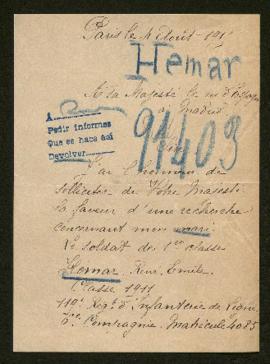 Paris le 4 Août 191
Hemar
A Sa Majesté le roi d'Espagne
à Madrid
A
Pedir informes
Que se hace así
Devolver
91403
Sire
J'ai l'honneur de
Solliciter de Votre Majesté
la faveur d'une recherche
concernant mon mari
Le soldat de 1ère classe
Hemar René Emile
Classe 1911
110e Régt d'Infanterie de ligne
Compagnie Matricule 4085